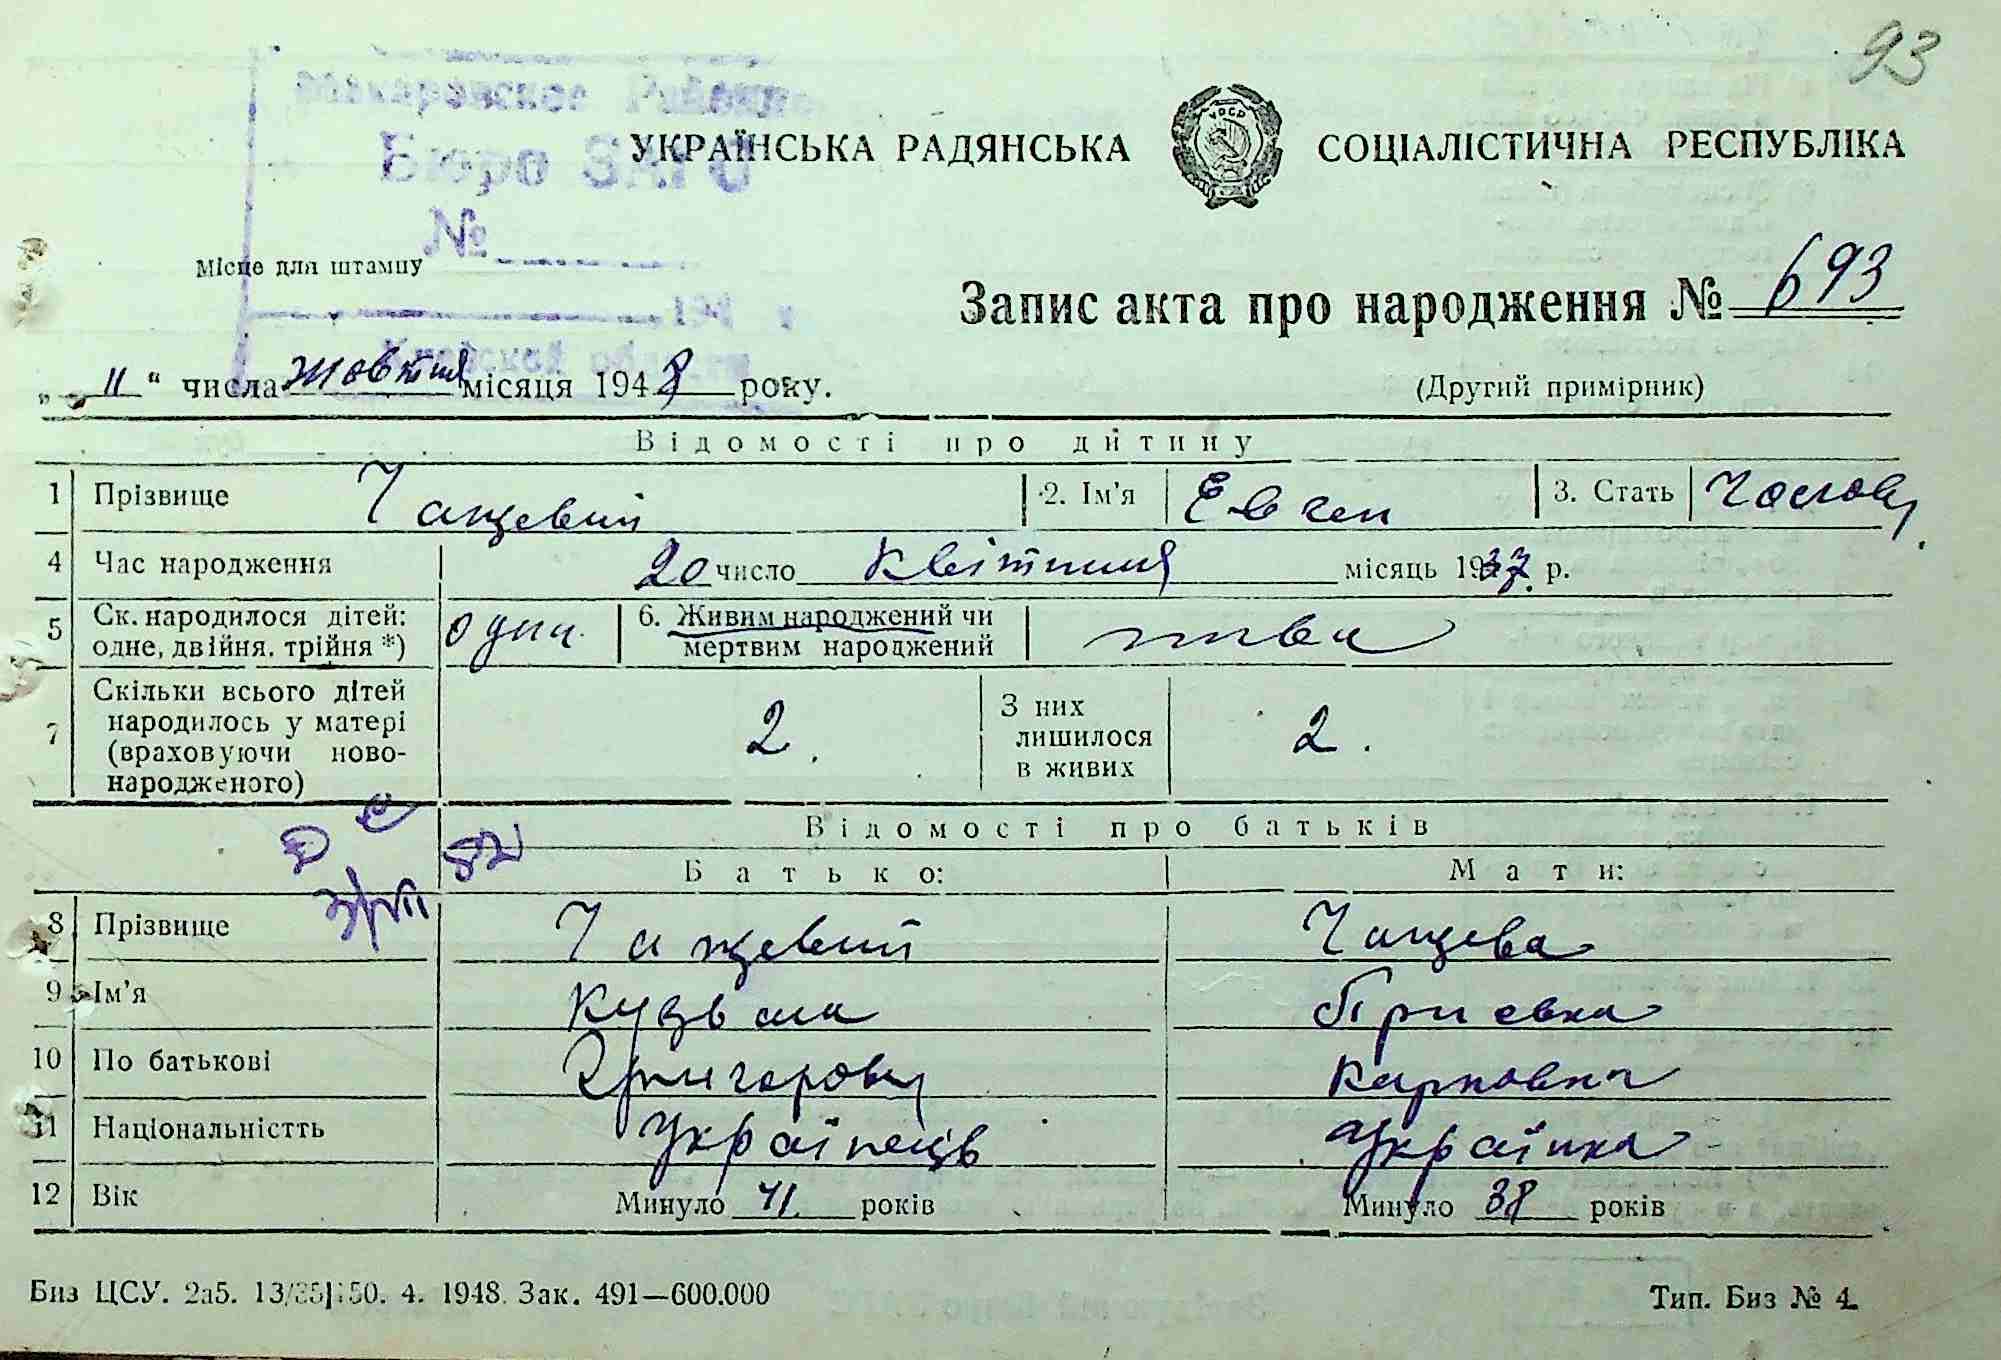 93
Макаровское Районне
Бюро ЗАГС
УКРАЇНСЬКА РАДЯНСЬКА СОЦІАЛІСТИЧНА РЕСПУБЛІКА
УРСР
№
Місце для штампу
194 г
Киевской области
Запис акта про народження № 693
„ 11 “ числа жовтня місяця 1948 року.
(Другий примірник)
Відомості про дитину
1 Прізвище Чащевий 2. Ім’я Евген 3. Стать Чолов
4 Час народження 20 число Квітния місяць 1937 р.
5 Ск. народилося дітей: одне, двійня, трійня *) один. 6. Живим народжений чи мертвим народжений
7 Скільки всього дітей народилось у матері (враховуючи ново-народженого) 2. З них лишилося в живих 2.
Відомості про батьків
Батько: Мати:
8 Прізвище Чащевий Чащева
9 Ім’я Кузьма
10 По батькові Григорович Карповна
11 Національністть Українець Українка
12 Вік Минуло 41 років Минуло 38 років
Биз ЦСУ. 2а5. 13/35 150. 4. 1948. Зак. 491—600.000
Тип. Биз № 4.